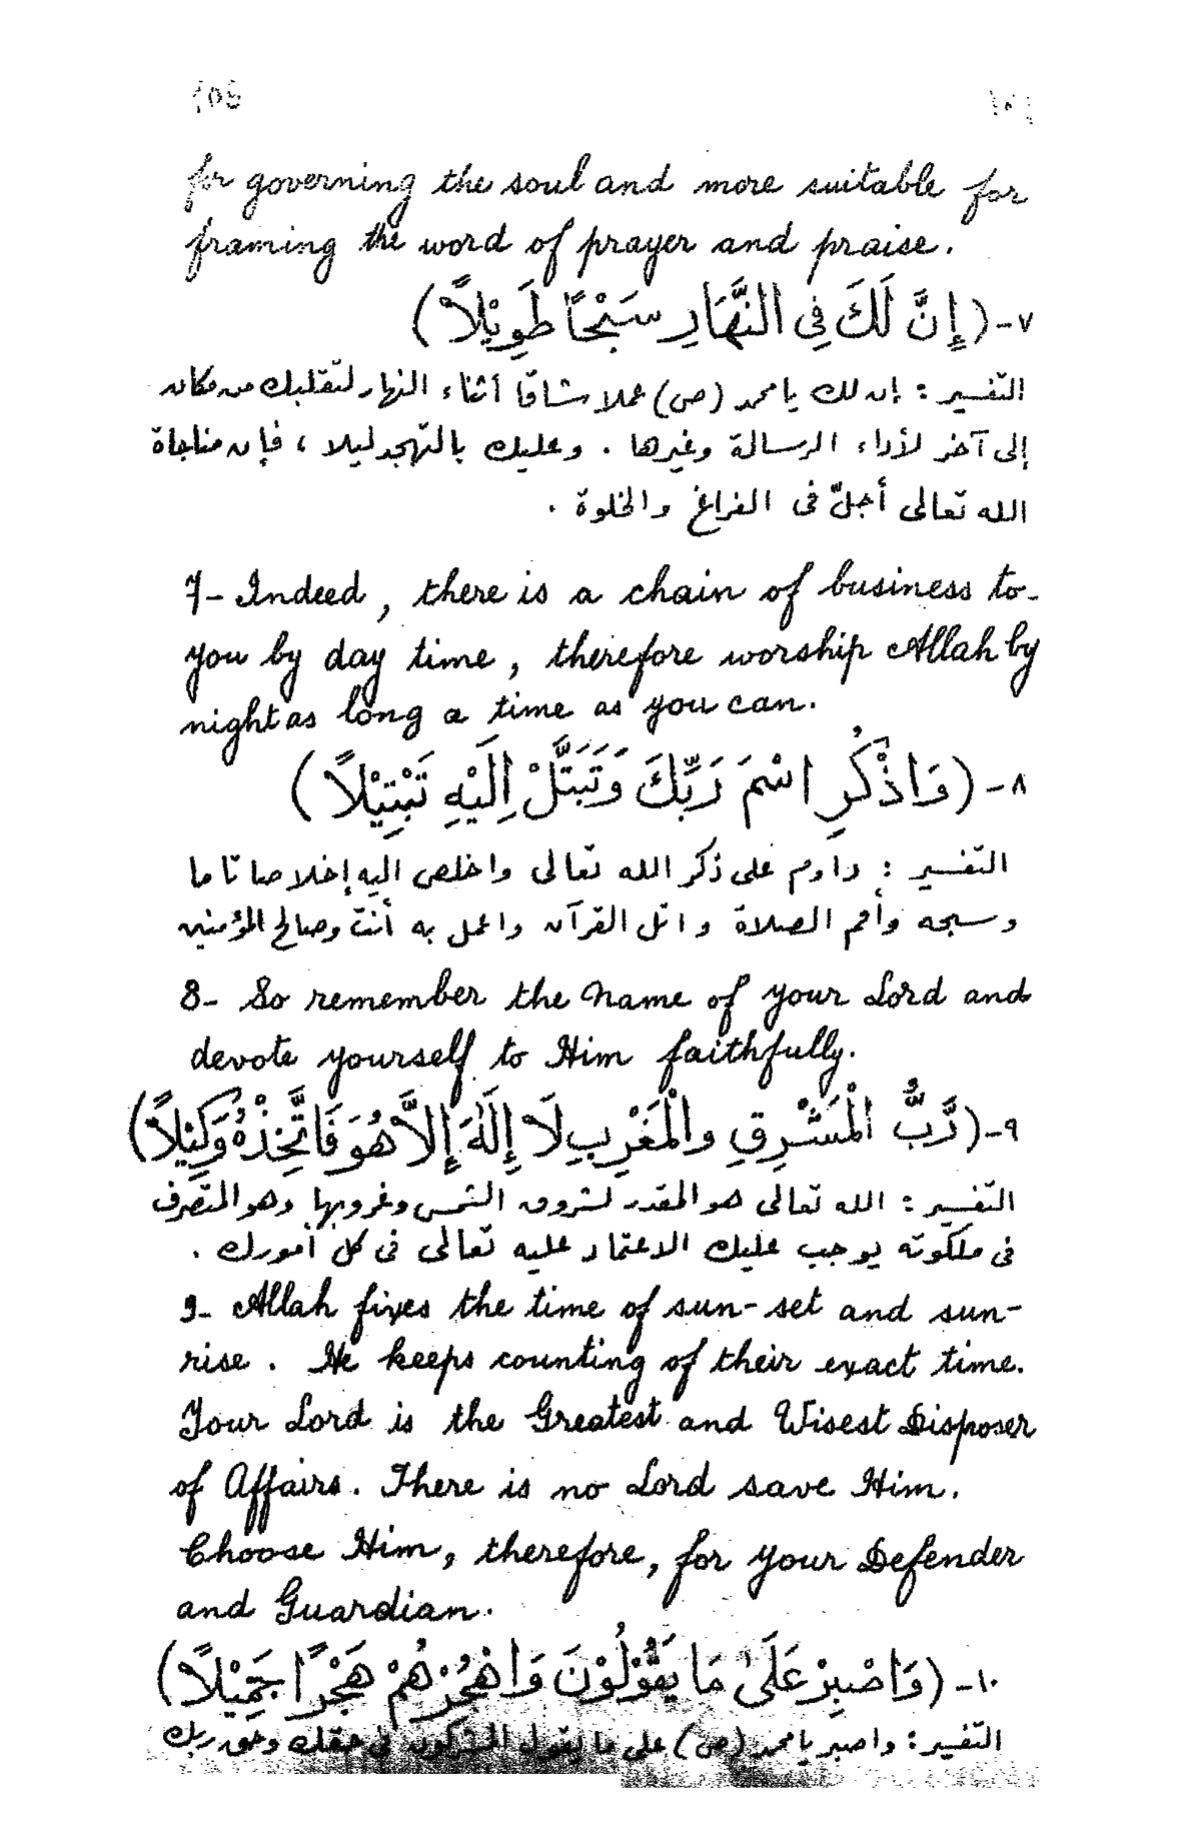 for governing the soul and more suitable for
framing the word of prayer and praise.
٧-(إِنَّ لَكَ فِي النَّهَارِ سَبْحًا طَوِيْلاً)
التفسير : إن لك يا محمد (ص) عملا شاقا أثناء النهار لتقلبك من مكان
إلى آخر لأداء الرسالة وغيرها . وعليك بالتهجد ليلا ، فإن مناجاة
الله تعالى أجلّ فى الفراغ والخلوة .
7- Indeed, there is a chain of business to-
you by day time, therefore worship Allah by
night as long a time as you can.
٨-(وَاذْكُرِ اسْمَ رَبِّكَ وَتَبَتَّلْ اِلَيْهِ تَبْتِيْلاً)
التفسير : داوم على ذكر الله تعالى واخلص اليه إخلاصا تاما
وسبحه وأقم الصلاة واتل القرآن واعمل به أنت وصالح المؤمنين
8- So remember the Name of your Lord and
devote yourself to Him faithfully.
٩-(رَّبُّ الْمَشْرِقِ والْمَغْرِبِ لَا إِلَهَ إِلاَّ هُوَ فَاتَّخِذْهُ وَكِيْلاً)
التفسير : الله تعالى هو المقدر لشروق الشمس وغروبها وهو المتصرف
فى ملكوته يوجب عليك الاعتماد عليه تعالى فى كل أمورك .
9- Allah fixes the time of sun-set and sun-
rise. He keeps counting of their exact time.
Your Lord is the Greatest and Wisest Disposer
of Affairs. There is no Lord save Him.
Choose Him, therefore, for your Defender
and Guardian.
١٠-(وَاصْبِرْ عَلَىٰ مَا يَقُوْلُوْنَ وَاهْجُرْهُمْ هَجْرًا جَمِيْلاً)
التفسير : واصبر يا محمد (ص) على ما يقول المشركون فى حقك وحق ربك